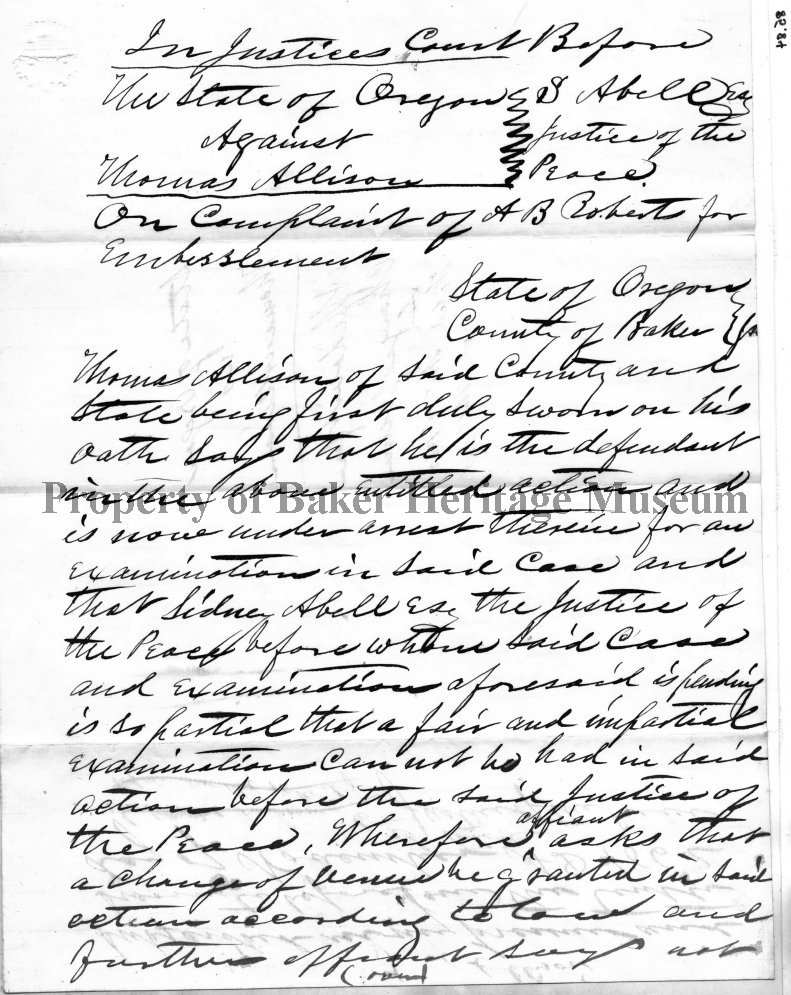 In Justices Court Before
The State of Oregon } S Abell Esq
Against Justice of the
Thomas Allison Peace.
On Complaint of A B Roberts for
Embesslement
State of Oregon }
County of Baker } ss
Thomas Allison of said County and
State being first duly sworn on his
oath says that he is the defendant
in the above entitled action and
is now under arrest therein for an
examination in said Case and
that Sidney Abell Esq the Justice of
the Peace before whom said Case
and examination aforesaid is pending
is so partial that a fair and impartial
examination can not be had in said
action before the said Justice of
the Peace, Wherefore affiant asks that
a change of venue be granted in said
action according to law and
further affiant says not
(over)
Property of Baker Heritage Museum